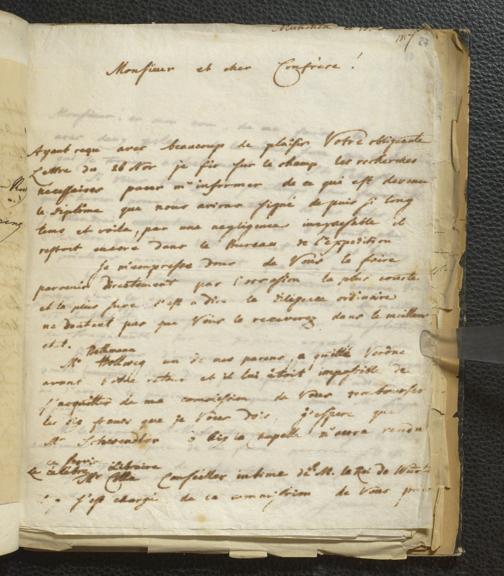 München
Monsieur et cher Confrère!
Ayant reçu avec beaucoup de plaisir Votre obligeante
Lettre du 26 Nov je fis sur le champ les recherches
necessaires pour m'informer de ce qui est devenu
le diplôme que nous avions signé depuis si long
tems et voila, par une negligence il
restoit encore dans le Bureau de l'Expedition
Je m'empresse donc de Vous le faire
parvenir directement par l'occasion la plus courte
et la plus sure c'est a dire la diligence ordinaire
ne doutant pas que Vous le recevrez dans le meilleur
etat.
Mr un de mes parens, a quitté
avant Votre retour et il lui étoit impossible de
s'acquitter de ma commission de Vous rembourser
les dix francs que je Vous dois j'espere que
Mr a la m'aura rendu
ce
le célèbre Libraire
Mr Cotta Conseiller intime de S. M. le Roi de
s'est chargé de ce commission de Vous